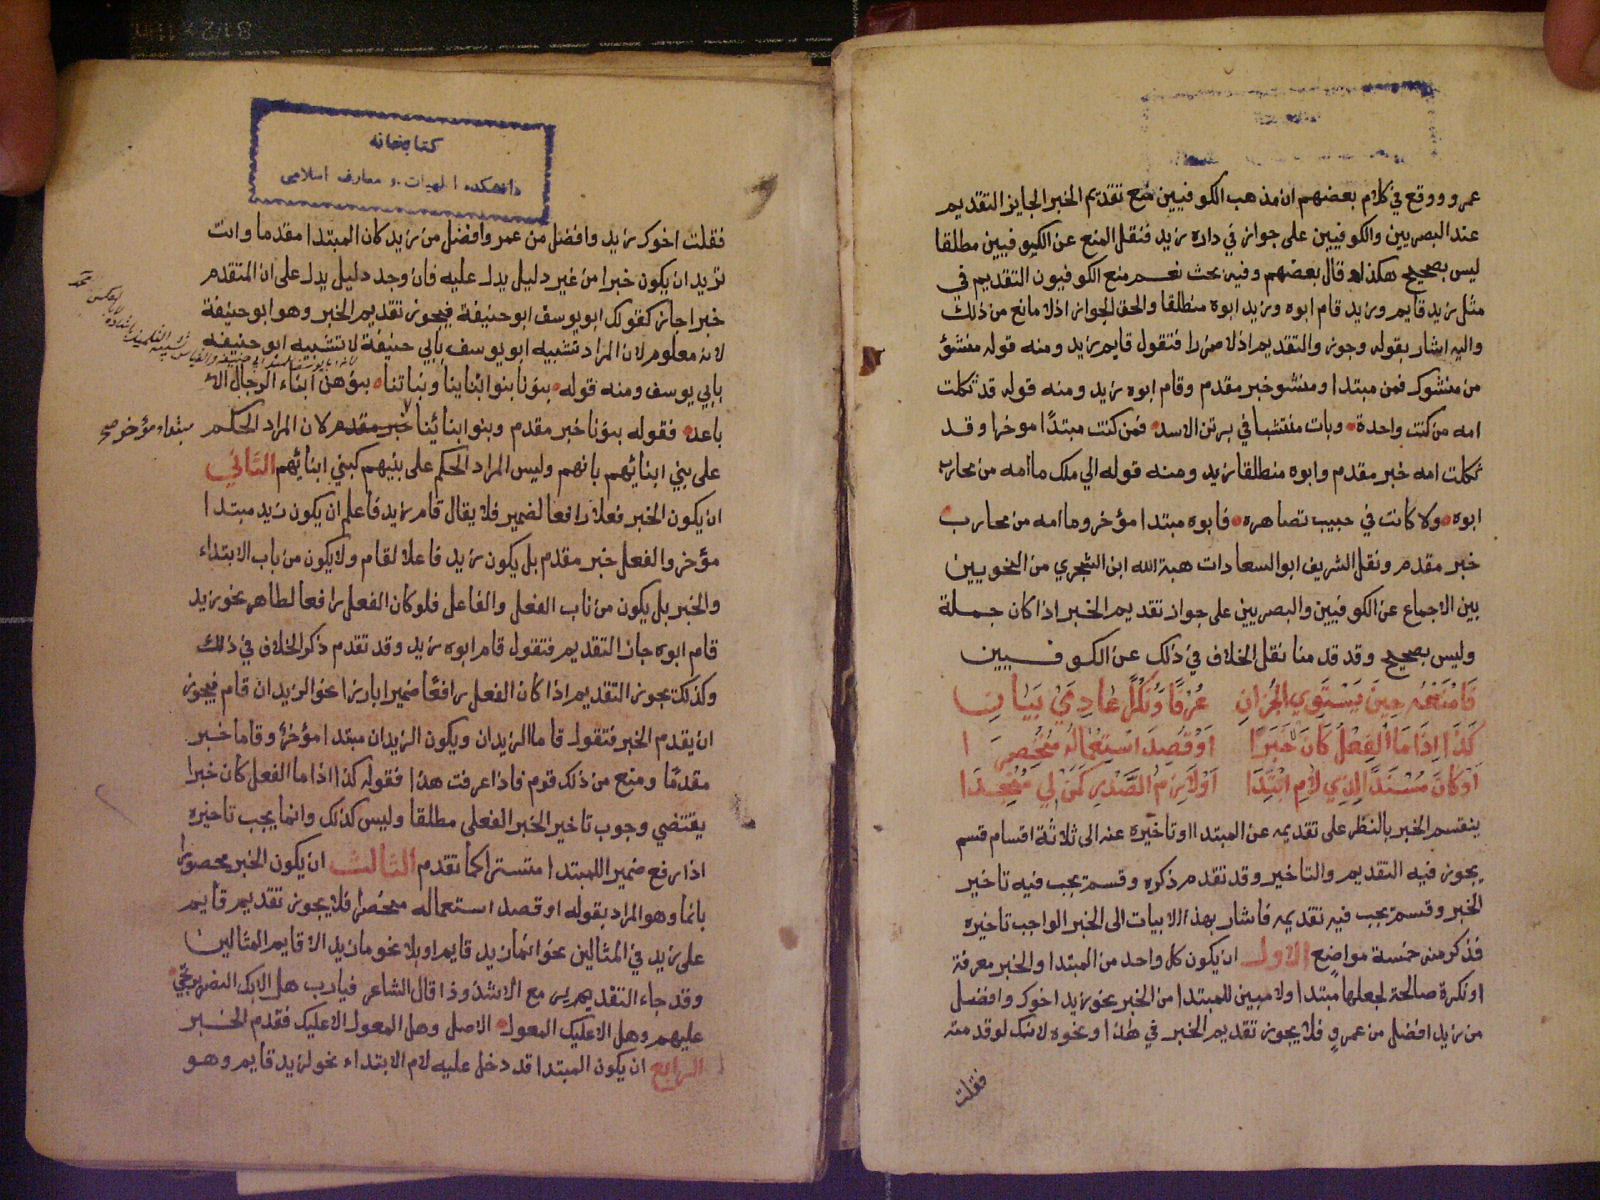 عمرو ووقع في كلام بعضهم ان مذهب الكوفيين منع تقديم الخبر الجايز التقديم
عند البصريين والكوفيين على جواز في داره زيد فنقل المنع عن الكوفيين مطلقا
ليس بصحيح هكذا قال بعضهم وفيه بحث نعم منع الكوفيون التقديم في
مثل زيد قايم وزيد قام ابوه وزيد ابوه منطلقا والحق الجواز اذ لا مانع من ذلك
واليه اشار بقوله وجوزوا التقديم اذ لا ضررا فتقول قايم زيد ومنه قوله مشنؤ
من مشنوك فمن مبتدا ومشنو خبر مقدم وقام ابوه زيد ومنه قوله قد ثكلت
امه من كنت واحدة وبات منتشبا في برثن الاسد فمن كنت مبتدًا موخرا وقد
ثكلت امه خبر مقدم وابوه منطلقا زيد ومنه قوله الي ملك ما امه من محارب
ابوه ولا كانت في حبيب تصاهره فابوه مبتدا مؤخر وما امه من محارب
خبر مقدم ونقل الشريف ابو السعادات هبة الله ابن الشجري من النحويين
بين الاجماع عن الكوفيين والبصريين على جواز تقديم الخبر اذا كان جملة
وليس بصحيح وقد قدمنا نقل الخلاف في ذلك عن الكوفيين
فَامْنَعْهُ حِينَ يَسْتَوِي الجُزآنِ عُرْفًا وَنُكْرًا عَادِمَيْ بَيَانِ
كَذَا اِذَا مَا الفِعْلُ كَانَ خَبَرًا اَوْ قُصِدَ اسْتِعْمَالُهُ مُنْحَصِرَا
اَوْ كَانَ مُسْنَدًا لِذِي لَامِ ابْتِدَا اَوْ لَازِمِ الصَّدْرِ كَمَنْ لِي مُنْجِدَا
ينقسم الخبر بالنظر على تقديمه عن المبتدا او تاخيره عنه الى ثلاثة اقسام قسم
يجوز فيه التقديم والتاخير وقد تقدم ذكره وقسم يجب فيه تاخير
الخبر وقسم يجب فيه تقديمه فاشار بهذه الابيات الى الخبر الواجب تاخيره
فذكر منه خمسة مواضع الاول ان يكون كل واحد من المبتدا والخبر معرفة
او نكرة صالحة لجعلها مبتدا ولا مبين للمبتدا من الخبر نحو زيد اخوك وافضل
من زيد افضل من عمرو فلا يجوز تقديم الخبر في هذا ونحوه لانك لو قدمته
فقلت
كتابخانه
دانشكده الهيات و معارف اسلامى
فقلت اخوك زيد وافضل من عمر وافضل من زيد كان المبتدا مقدما وانت
تريد ان يكون خبرا من غير دليل يدل عليه فان وجد دليل يدل على ان المتقدم
خبرا جاز كقولك ابو يوسف ابو حنيفة فيجوز تقديم الخبر وهو ابو حنيفة
لانه معلوم لان المراد تشبيه ابو يوسف بابي حنيفة لا تشبيه ابو حنيفه
بابي يوسف ومنه قوله بنونا بنوا ابناينا وبناتنا بنوهن ابناء الرجال الا
باعد فقوله بنونا خبر مقدم وبنوا ابنائنا خبر مقدم لان المراد الحكم
مبتداء مؤخر صح
على بني ابنائهم بانهم وليس المراد الحكم على بنيهم كبني ابنائهم الثاني
ان يكون الخبر فعلا رافعا لضمير فلا يقال قام زيد فاعلم ان يكون زيد مبتدا
مؤخر والفعل خبر مقدم بل يكون زيد فاعلا لقام ولا يكون من باب الابتداء
والخبر بل يكون من باب الفعل والفاعل فلو كان الفعل رافعا لظاهر نحو زيد
قام ابوه جاز التقديم فتقول قام ابوه زيد وقد تقدم ذكر الخلاف في ذلك
وكذلك يجوز التقديم اذا كان الفعل رافعًا ضميرا بارزا نحو الزيدان قام فيجوز
ان يقدم الخبر فتقول قاما الزيدان ويكون الزيدان مبتدا مؤخرا وقاما خبر
مقدمًا ومنع من ذلك قوم فاذا عرفت هذا فقوله كذا اذا ما الفعل كان خبرا
يقتضي وجوب تاخير الخبر الفعلى مطلقا وليس كذلك وانما يجب تاخيره
اذا رفع ضميرا للمبتدا مستترا كما تقدم الثالث ان يكون الخبر محصورا
بانما وهو المراد بقوله او قصد استعماله منحصرا فلا يجوز تقديم قايم
على زيد في المثالين نحو انما زيد قايم او بلا نحو ما زيد الا قايم المثالين
وقد جاء التقديم مع الا شذوذا قال الشاعر فيارب هل الا بك النصر يرتجي
عليهم وهل الا عليك المعول الاصل وهل المعول الا عليك فقدم الخبر
الرابع ان يكون المبتدا قد دخل عليه لام الابتداء نحو لزيد قايم وهو